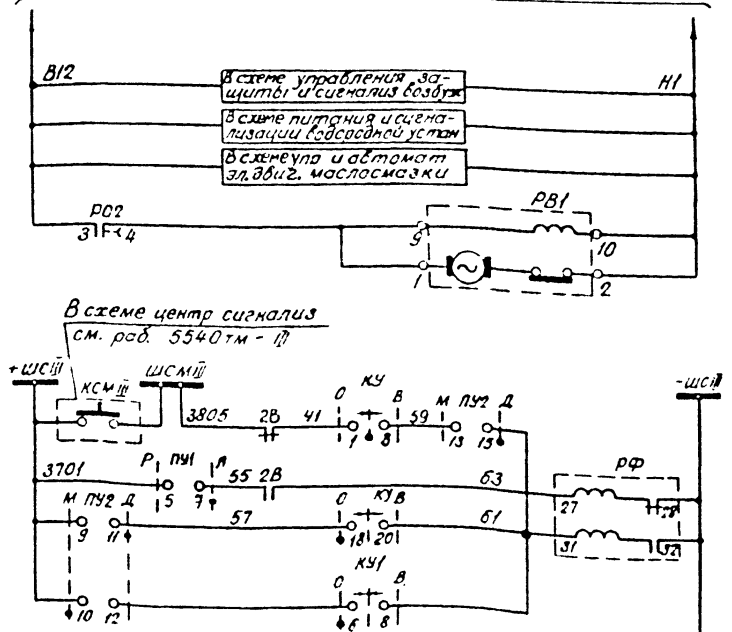 В12
Н1
В схеме управления за-
щиты и сигнализ возбуж
В схеме питания и сигна-
лизации водородной устан
В схеме упр и автомат
эл. двиг. маслосмазки
РО2
3 4
РВ1
9
10
1
2
В схеме центр сигнализ
см. раб. 5540тм - III
+ШСIII
КСМIII
ШСМIII
-ШСIII
3805
2В
41
О
КУ
В
59
М
ПУ2
Д
1
8
13
15
3701
Р
ПУ1
А
5
7
55
2В
63
РФ
27
28
М
ПУ2
Д
9
11
57
О
КУ
В
18
20
61
31
32
КУ1
О
В
10
12
6
8